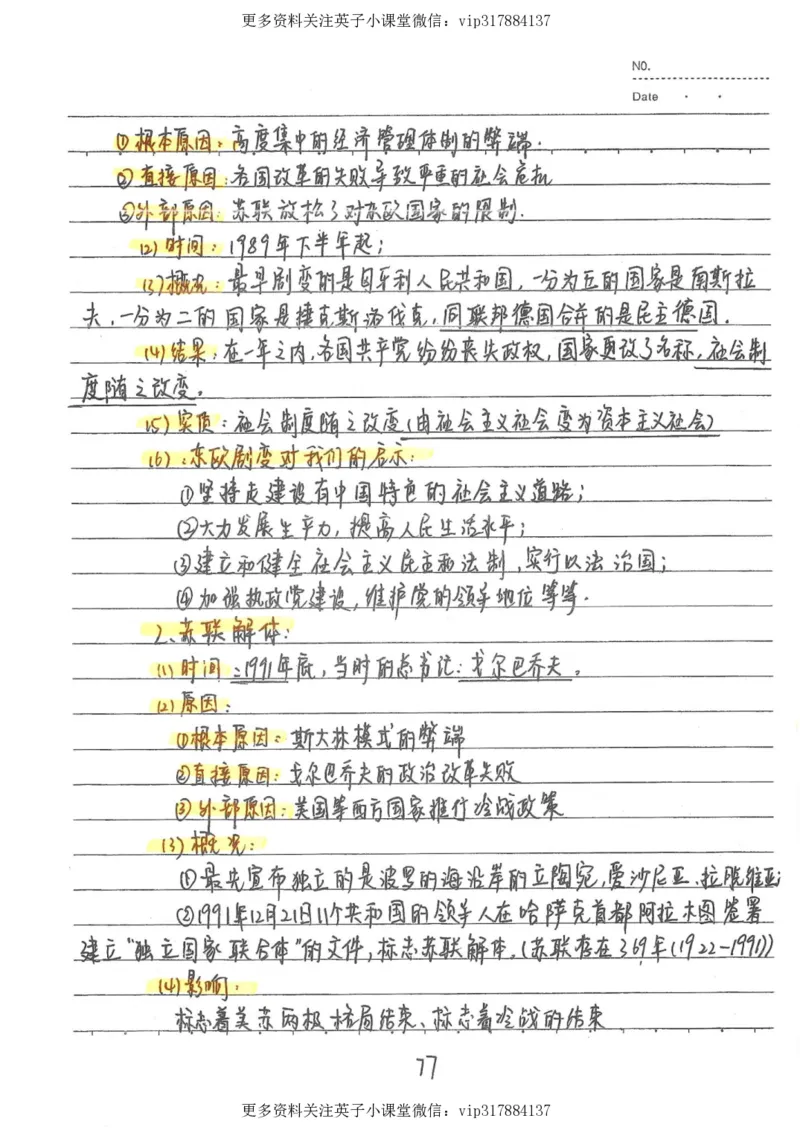 更多资料关注英子小课堂微信：vip317884137
NO.
Date
①根本原因：高度集中的经济管理体制的弊端.
②直接原因：各国改革的失败导致严重的社会危机
③外部原因：苏联放松了对东欧国家的限制.
(2)时间：1989年下半年起；
(3)概况：最早剧变的是匈牙利人民共和国，一分为五的国家是南斯拉
夫，一分为二的国家是捷克斯洛伐克，同联邦德国合并的是民主德国.
(4)结果：在一年之内，各国共产党纷纷丧失政权，国家更改了名称，社会制
度随之改变。
(5)实质：社会制度随之改变(由社会主义社会变为资本主义社会)
(6)：东欧剧变对我们的启示：
①坚持走建设有中国特色的社会主义道路；
②大力发展生产力，提高人民生活水平；
③建立和健全社会主义民主和法制，实行以法治国；
④加强执政党建设，维护党的领导地位等等.
2、苏联解体：
(1)时间：1991年底，当时的总书记：戈尔巴乔夫。
(2)原因：
①根本原因：斯大林模式的弊端
②直接原因：戈尔巴乔夫的政治改革失败
③外部原因：美国等西方国家推行冷战政策
(3)概况：
①最先宣布独立的是波罗的海沿岸的立陶宛，爱沙尼亚、拉脱维亚；
②1991年12月21日11个共和国的领导人在哈萨克首都阿拉木图签署
建立“独立国家联合体”的文件，标志苏联解体.(苏联存在了69年(1922-1991))
(4)影响：
标志着美苏两极格局结束、标志着冷战的结束
77
更多资料关注英子小课堂微信：vip317884137